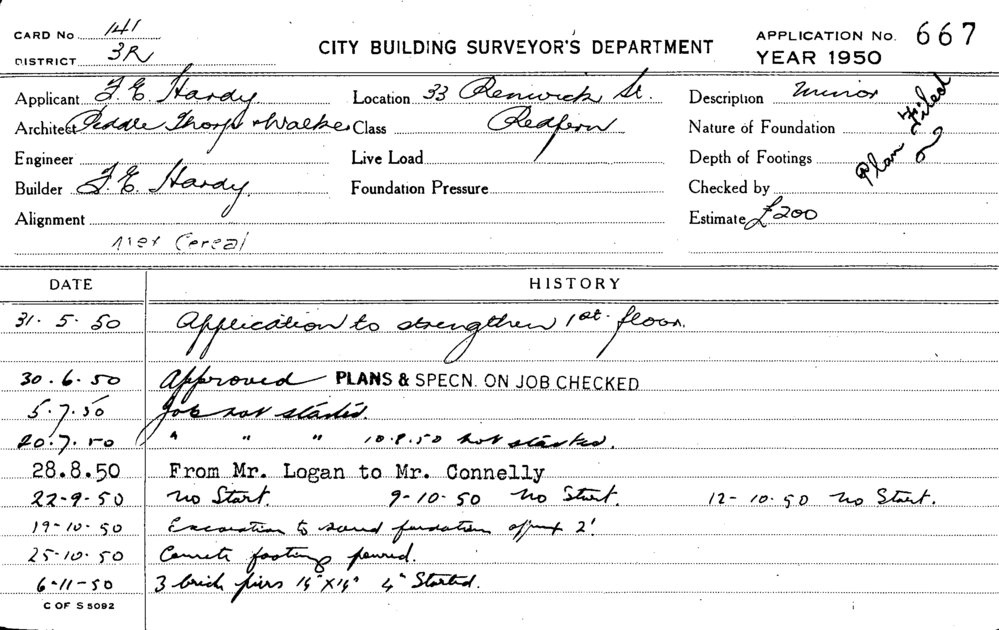 CARD No 141
DISTRICT 3R
CITY BUILDING SURVEYOR'S DEPARTMENT
APPLICATION No. 667
YEAR 1950
Applicant F. E. Hardy
Location 33 Renwick St.
Description Minor
Architect Peddle Thorp & Walker
Class Redfern
Nature of Foundation
Plan Filed
Engineer
Live Load
Depth of Footings
Builder F. E. Hardy
Foundation Pressure
Checked by
Alignment
Estimate £200
Cereal
DATE HISTORY
31. 5. 50 Application to strengthen 1st. floor.
30.6.50 Approved PLANS & SPECN. ON JOB CHECKED
5.7.50 Job not started.
20.7.50 " " " 10.8.50 not started.
28.8.50 From Mr. Logan to Mr. Connelly
22-9-50 No Start. 9-10-50 No Start. 12-10-50 No Start.
19-10-50 Excavation to sound foundation approx 2'.
25-10-50 Concrete footing poured.
6-11-50 3 brick piers 14" X 14" 4" Started.
C OF S 5092